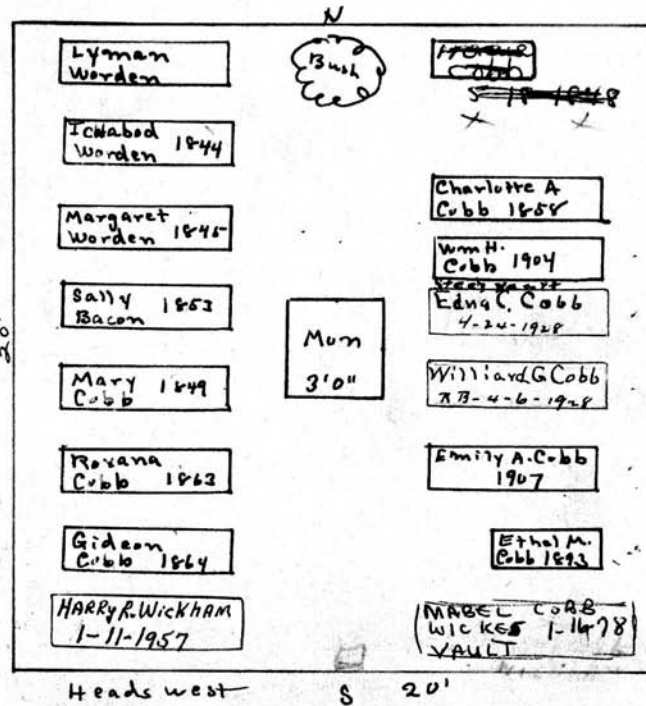 N
Lyman
Worden
Ichabod
Worden 1844
Margaret
Worden 1845
Sally
Bacon 1853
Mary
Cobb 1849
Roxana
Cobb 1863
Gideon
Cobb 1864
HARRY R. Wickham
1-11-1957
Bush
Mon
3'0"
Cobb
1848
Charlotte A
Cobb 1858
Wm H.
Cobb 1904
Steel Vault
Edna C. Cobb
4-24-1928
Williard G Cobb
RB-4-6-1928
Emily A. Cobb
1907
Ethel M.
Cobb 1893
MABEL COBB
WICKES 1-16-78
VAULT
20'
Heads west S 20'